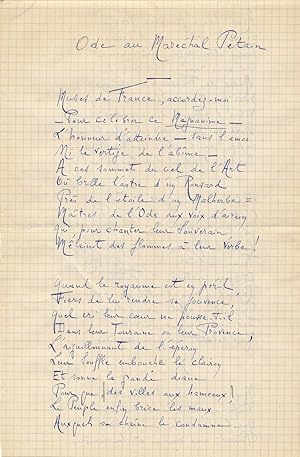 Ode au Maréchal Pétain
Muses de France, accordez-moi
— Pour célébrer ce Magnanime —
L'honneur d'atteindre — sans l'émoi
Ni le vertige de l'abîme —
A ces sommets du ciel de l'Art
Où brille l'astre d'un Ronsard
Près de l'étoile d'un Malherbe =
Maîtres de l'Ode aux voix d'airain
Qui, pour chanter leur Souverain,
Mêlaient des flammes à leur verbe !
Quand le royaume est en péril,
Fiers de lui rendre sa jouvence,
Quel cri leur cœur ne pousse-t-il
Dans leur Touraine ou leur Provence,
L'aiguillonnant de l'éperon
Leur souffle embouche le clairon
Et sonne la grande diane
Pour que, des villes aux hameaux !
Le Peuple enfin brise les maux
Auxquels sa chaîne le condamne.